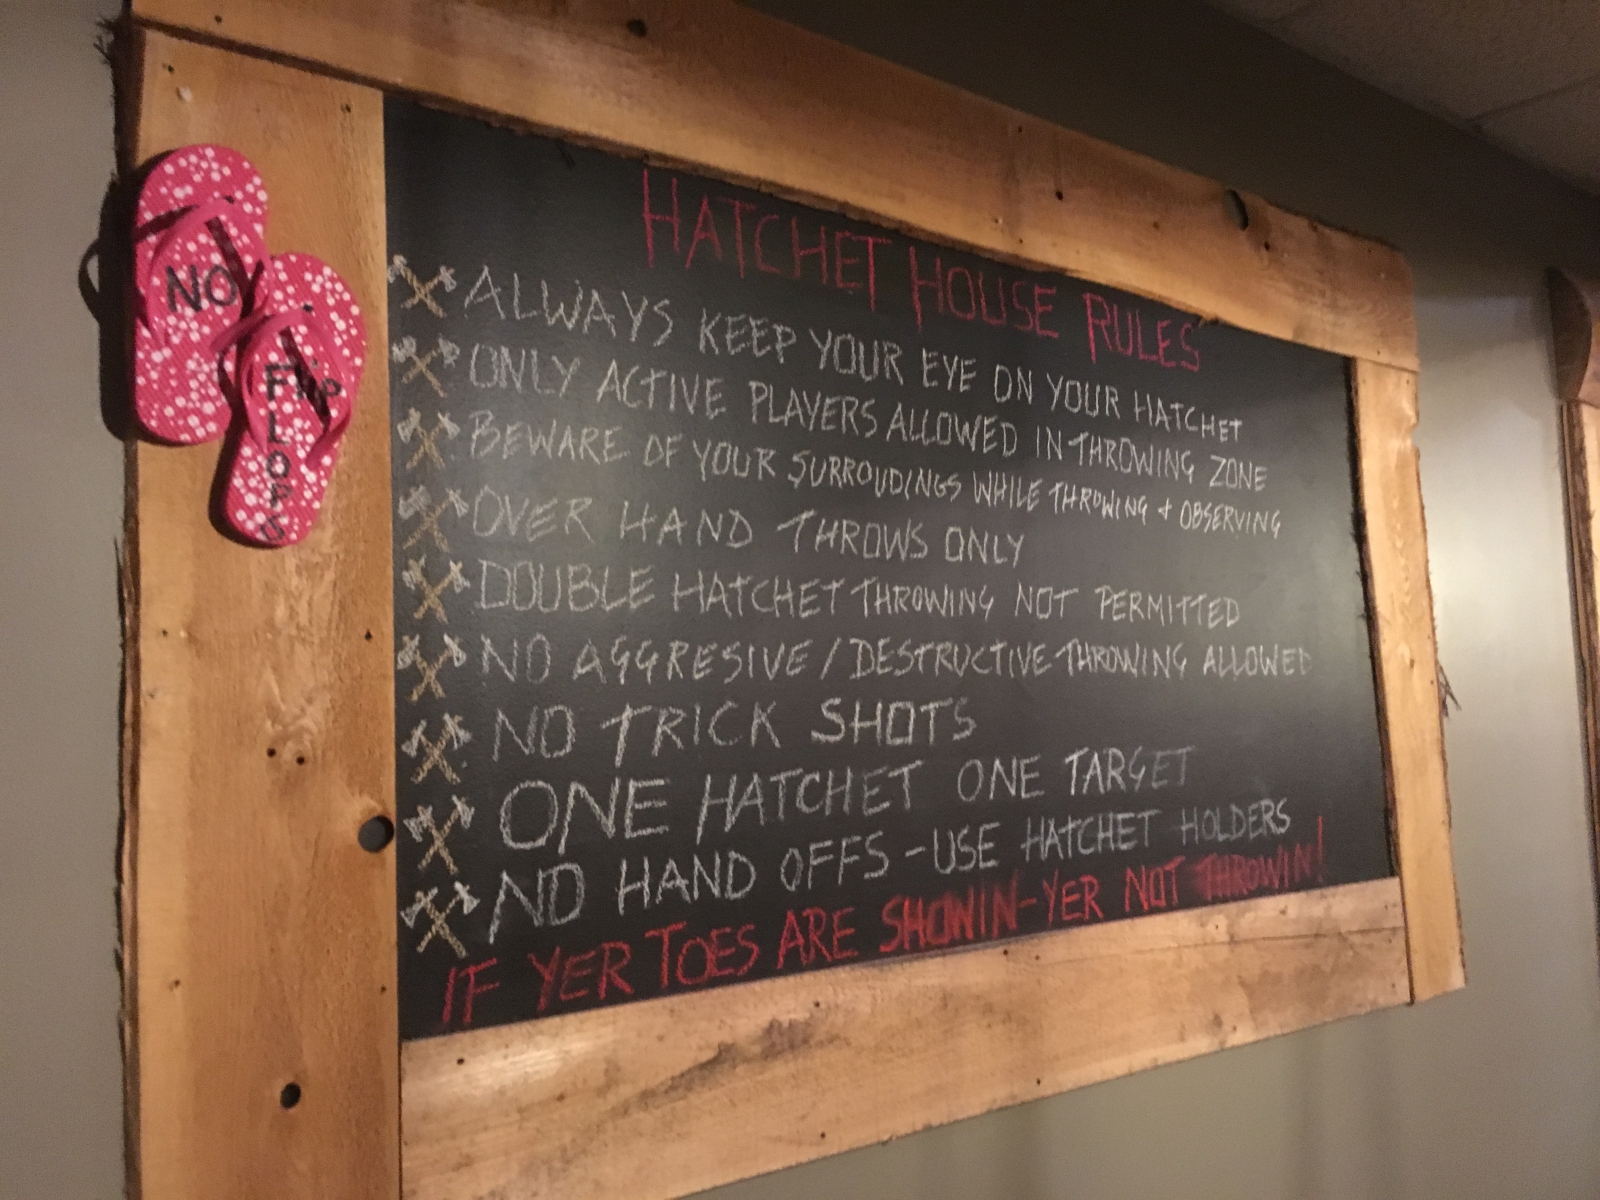 NO
Flip
FLOPS
HATCHET HOUSE RULES
ALWAYS KEEP YOUR EYE ON YOUR HATCHET
ONLY ACTIVE PLAYERS ALLOWED IN THROWING ZONE
BEWARE OF YOUR SURROUDINGS WHILE THROWING + OBSERVING
OVER HAND THROWS ONLY
DOUBLE HATCHET THROWING NOT PERMITTED
NO AGGRESIVE / DESTRUCTIVE THROWING ALLOWED
NO TRICK SHOTS
ONE HATCHET ONE TARGET
NO HAND OFFS - USE HATCHET HOLDERS
IF YER TOES ARE SHOWIN - YER NOT THROWIN!